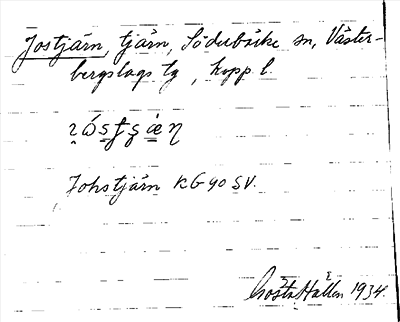 Jostjärn, tjärn, Söderbärke sn, Väster-
bergslags tg, kopp. l.
Johstjärn KG 40 SV.
Gösta Hallén 1934.